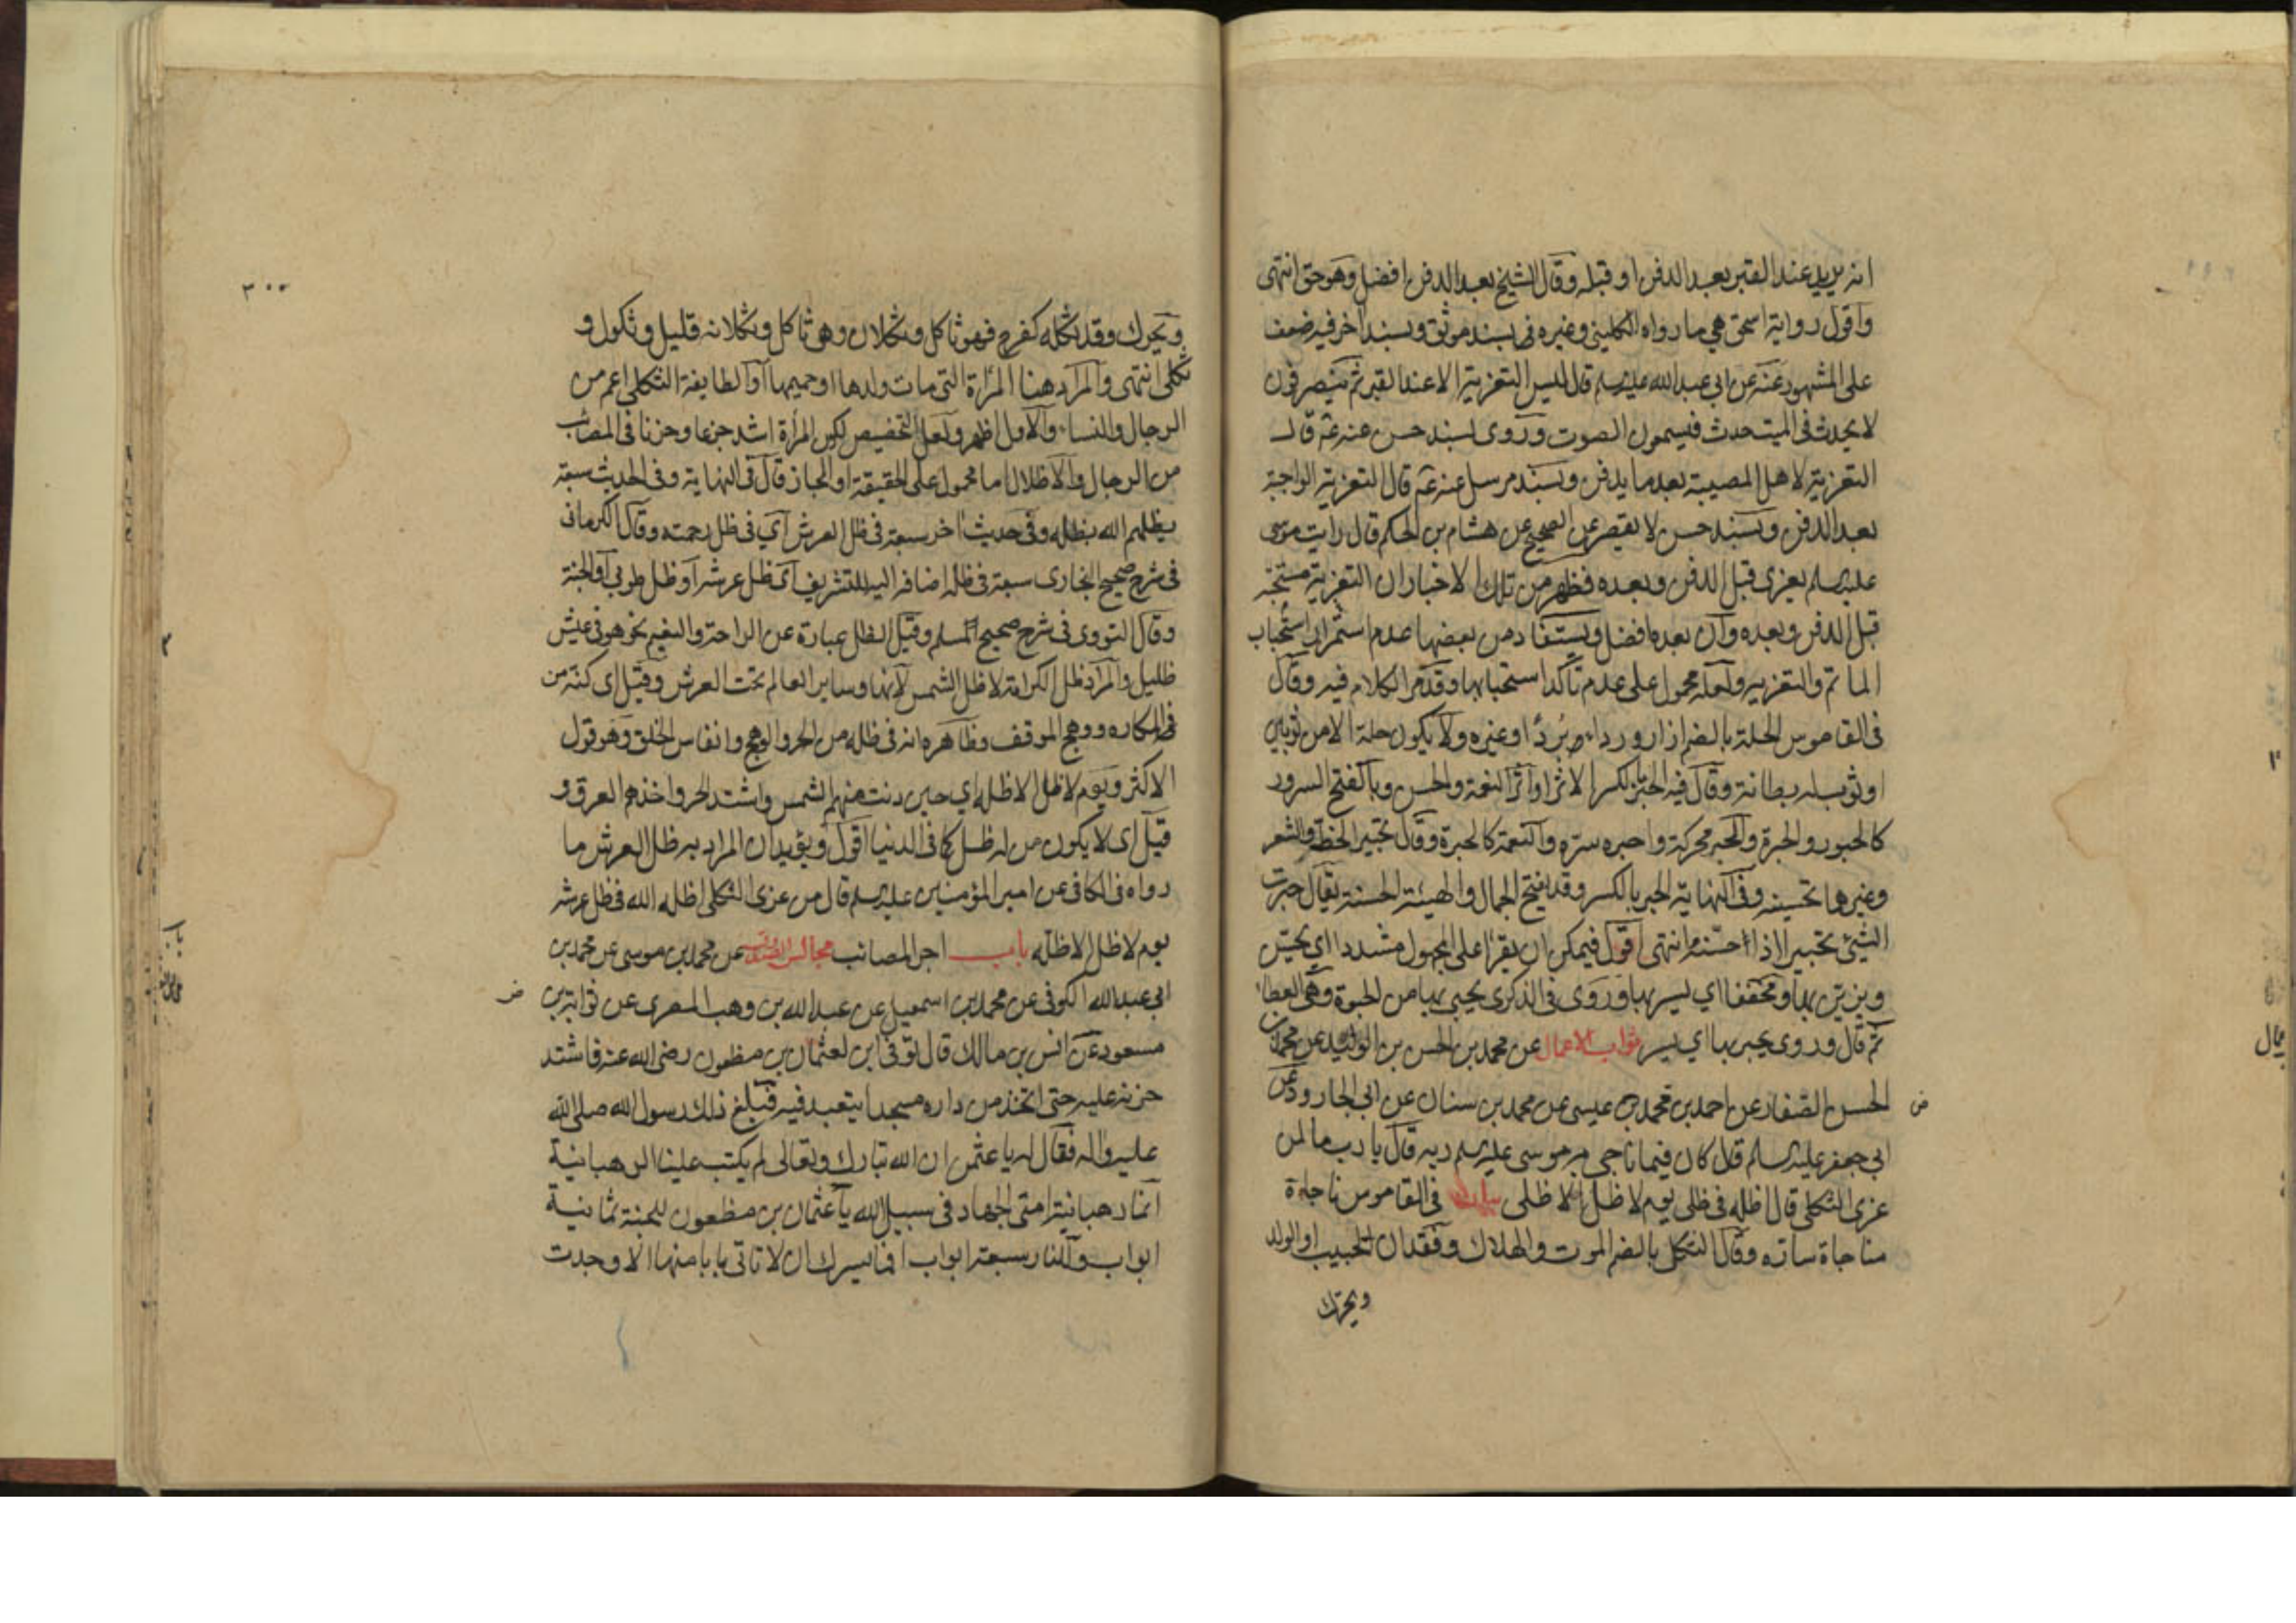 انه يريد عند القبر بعد الدفن او قبله وقال الشيخ بعد الدفن افضل وهو حق انتهى
واقول رواية اسحق هي ما رواه الكليني وغيره بسند موثق وبسند آخر فيه ضعف
على المشهور عنه عن ابي عبد الله عليه السلم قال ليس التعزية الا عند القبر ثم ينصرفون
لا يحدث في الميت حدث فيسمعون الصوت وروى بسند حسن عنه عم قال
التعزية لاهل المصيبة بعد ما يدفن وبسند مرسل عنه عم قال التعزية الواجبة
بعد الدفن وبسند حسن لا يقصر عن الصحيح عن هشام بن الحكم قال رايت موسى
عليه السلم يعزى قبل الدفن وبعده فظهر من تلك الاخبار ان التعزية مستحبة
قبل الدفن وبعده وان بعده افضل ويستفاد من بعضها عدم استمرار استحباب
الماتم والتعزية ولعله محمول على عدم تاكد استحبابها وقد مر الكلام فيه وقال
في القاموس الحلة بالضم ازار ورداء برد او غيره ولا يكون حلة الا من ثوبين
او ثوب له بطانة وقال فيه الحبر بالكسر الاثر او اثر النعمة والحسن وبالفتح السرور
كالحبور والحبرة والحبر محركة واحبره سره والنعمة كالحبرة وقال تحبير الخط والشعر
وغيرهما تحسينه وفي النهاية الحبر بالكسر وقد يفتح الجمال والهيئة الحسنة يقال حبرت
الشيئ تحبيرا اذا حسنته انتهى اقول فيمكن ان يقرا على المجهول مشددا اي يحسن
ويزين بها او مخففا اي يسر بها وروى في الذكرى يحبى بها من الحبوة وهي العطاء
ثم قال وروى يحبر بها اي يسر ثواب الاعمال عن محمد بن الحسن بن الوليد عن محمد بن
الحسن الصفار عن احمد بن محمد بن عيسى عن محمد بن سنان عن ابي الجارود عن
ض
ابي جعفر عليه السلم قال كان فيما ناجى به موسى عليه السلم ربه قال يا رب ما لمن
عزى الثكلى قال اظله في ظلى يوم لا ظل الا ظلى بيان في القاموس ناجاه
مناجاة ساره وقال الثكل بالضم الموت والهلاك وفقدان الحبيب او الولد
ويحرك
٣٠٠
ويحرك وقد ثكله كفرح فهو ثاكل وثكلان وهى ثاكل وثكلانه قليل وثكول و
ثكلى انتهى والمراد هنا المراة التى مات ولدها او حميمها او الطايفة الثكلى اعم من
الرجال والنساء والاول اظهر ولعل التخصيص لكون المرأة اشد جزعا وحزنا في المصائب
من الرجال والاظلال اما محمول على الحقيقة او المجاز قال في النهاية وفي الحديث سبعة
يظلهم الله بظله وفي حديث اخر سبعة في ظل العرش اي في ظل رحمته وقال الكرماني
في شرح صحيح البخارى سبعة في ظله اضافه اليه للتشريف اى ظل عرشه او ظل طوبى او الجنة
وقال النووى في شرح صحيح المسلم وقيل الظل عبارة عن الراحة والنعيم نحو هو في عيش
ظليل والمراد ظل الكرامة لا ظل الشمس لانها وساير العالم تحت العرش وقيل اى كنه من
المكاره ووهج الموقف وظاهره انه في ظله من الحر والوهج وانفاس الخلق وهو قول
الاكثر ويوم لا ظل الا ظله اي حين دنت منهم الشمس واشتد الحر واخذهم العرق و
قيل اى لا يكون من له ظل كما في الدنيا اقول ويؤيد ان المراد به ظل العرش ما
رواه في الكافي عن امير المؤمنين عليه السلم قال من عزى الثكلى اظله الله في ظل عرشه
يوم لا ظل الا ظله باب اجر المصائب مجالس الصدوق عن محمد بن موسى عن محمد بن
ابي عبد الله الكوفي عن محمد بن اسمعيل عن عبد الله بن وهب البصرى عن ثوابة بن
ض
مسعود عن انس بن مالك قال توفي ابن لعثمان بن مظعون رضى الله عنه فاشتد
حزنه عليه حتى اتخذ من داره مسجدا يتعبد فيه فبلغ ذلك رسول الله صلى الله
عليه واله فقال له يا عثمن ان الله تبارك وتعالى لم يكتب علينا الرهبانية
انما رهبانية امتى الجهاد في سبيل الله يا عثمان بن مظعون للجنة ثمانية
ابواب وللنار سبعة ابواب افما يسرك ان لا تاتى بابا منها الا وجدت